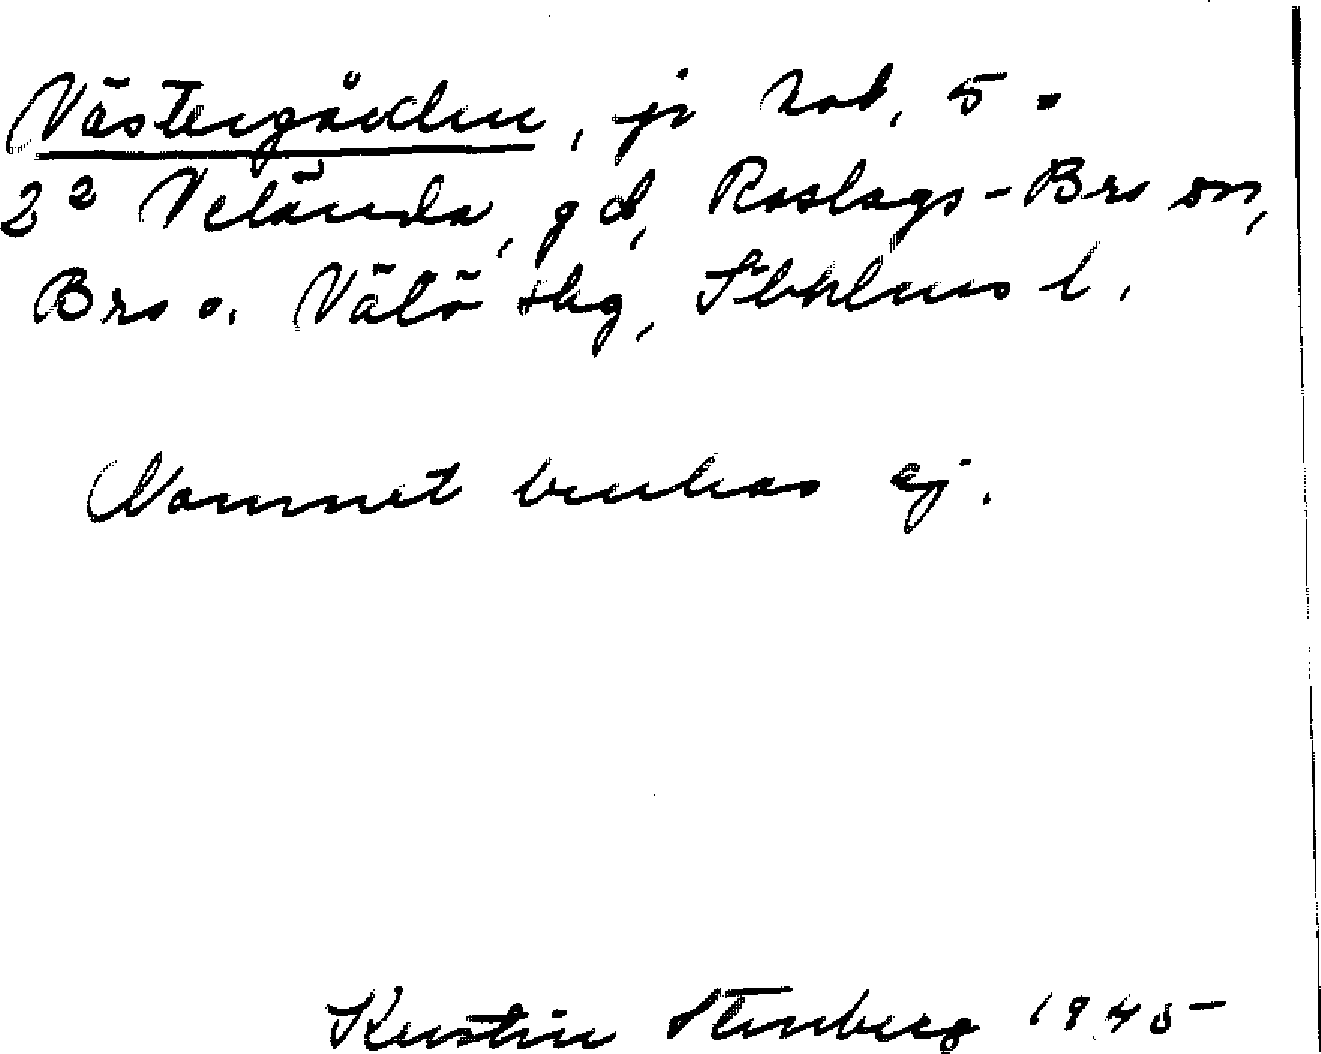 Västergården, jr hod. 5 o
2² Velända, gd, Roslags-Bro sn,
Bro o. Vätö skg, Sthlms l.
Namnet brukas ej.
Kerstin Stenberg 1945